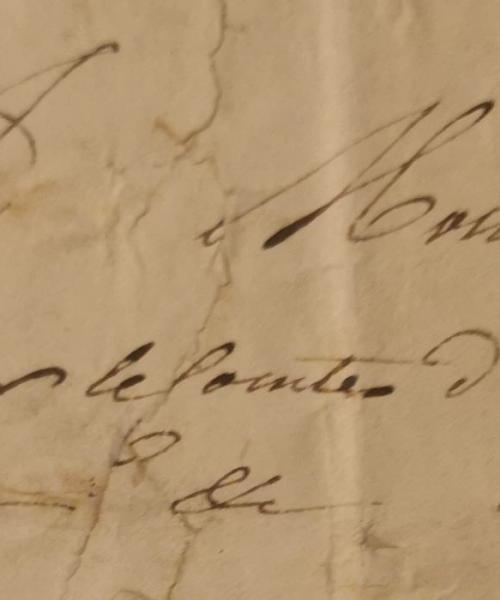 A Mon
le Comte d
&c